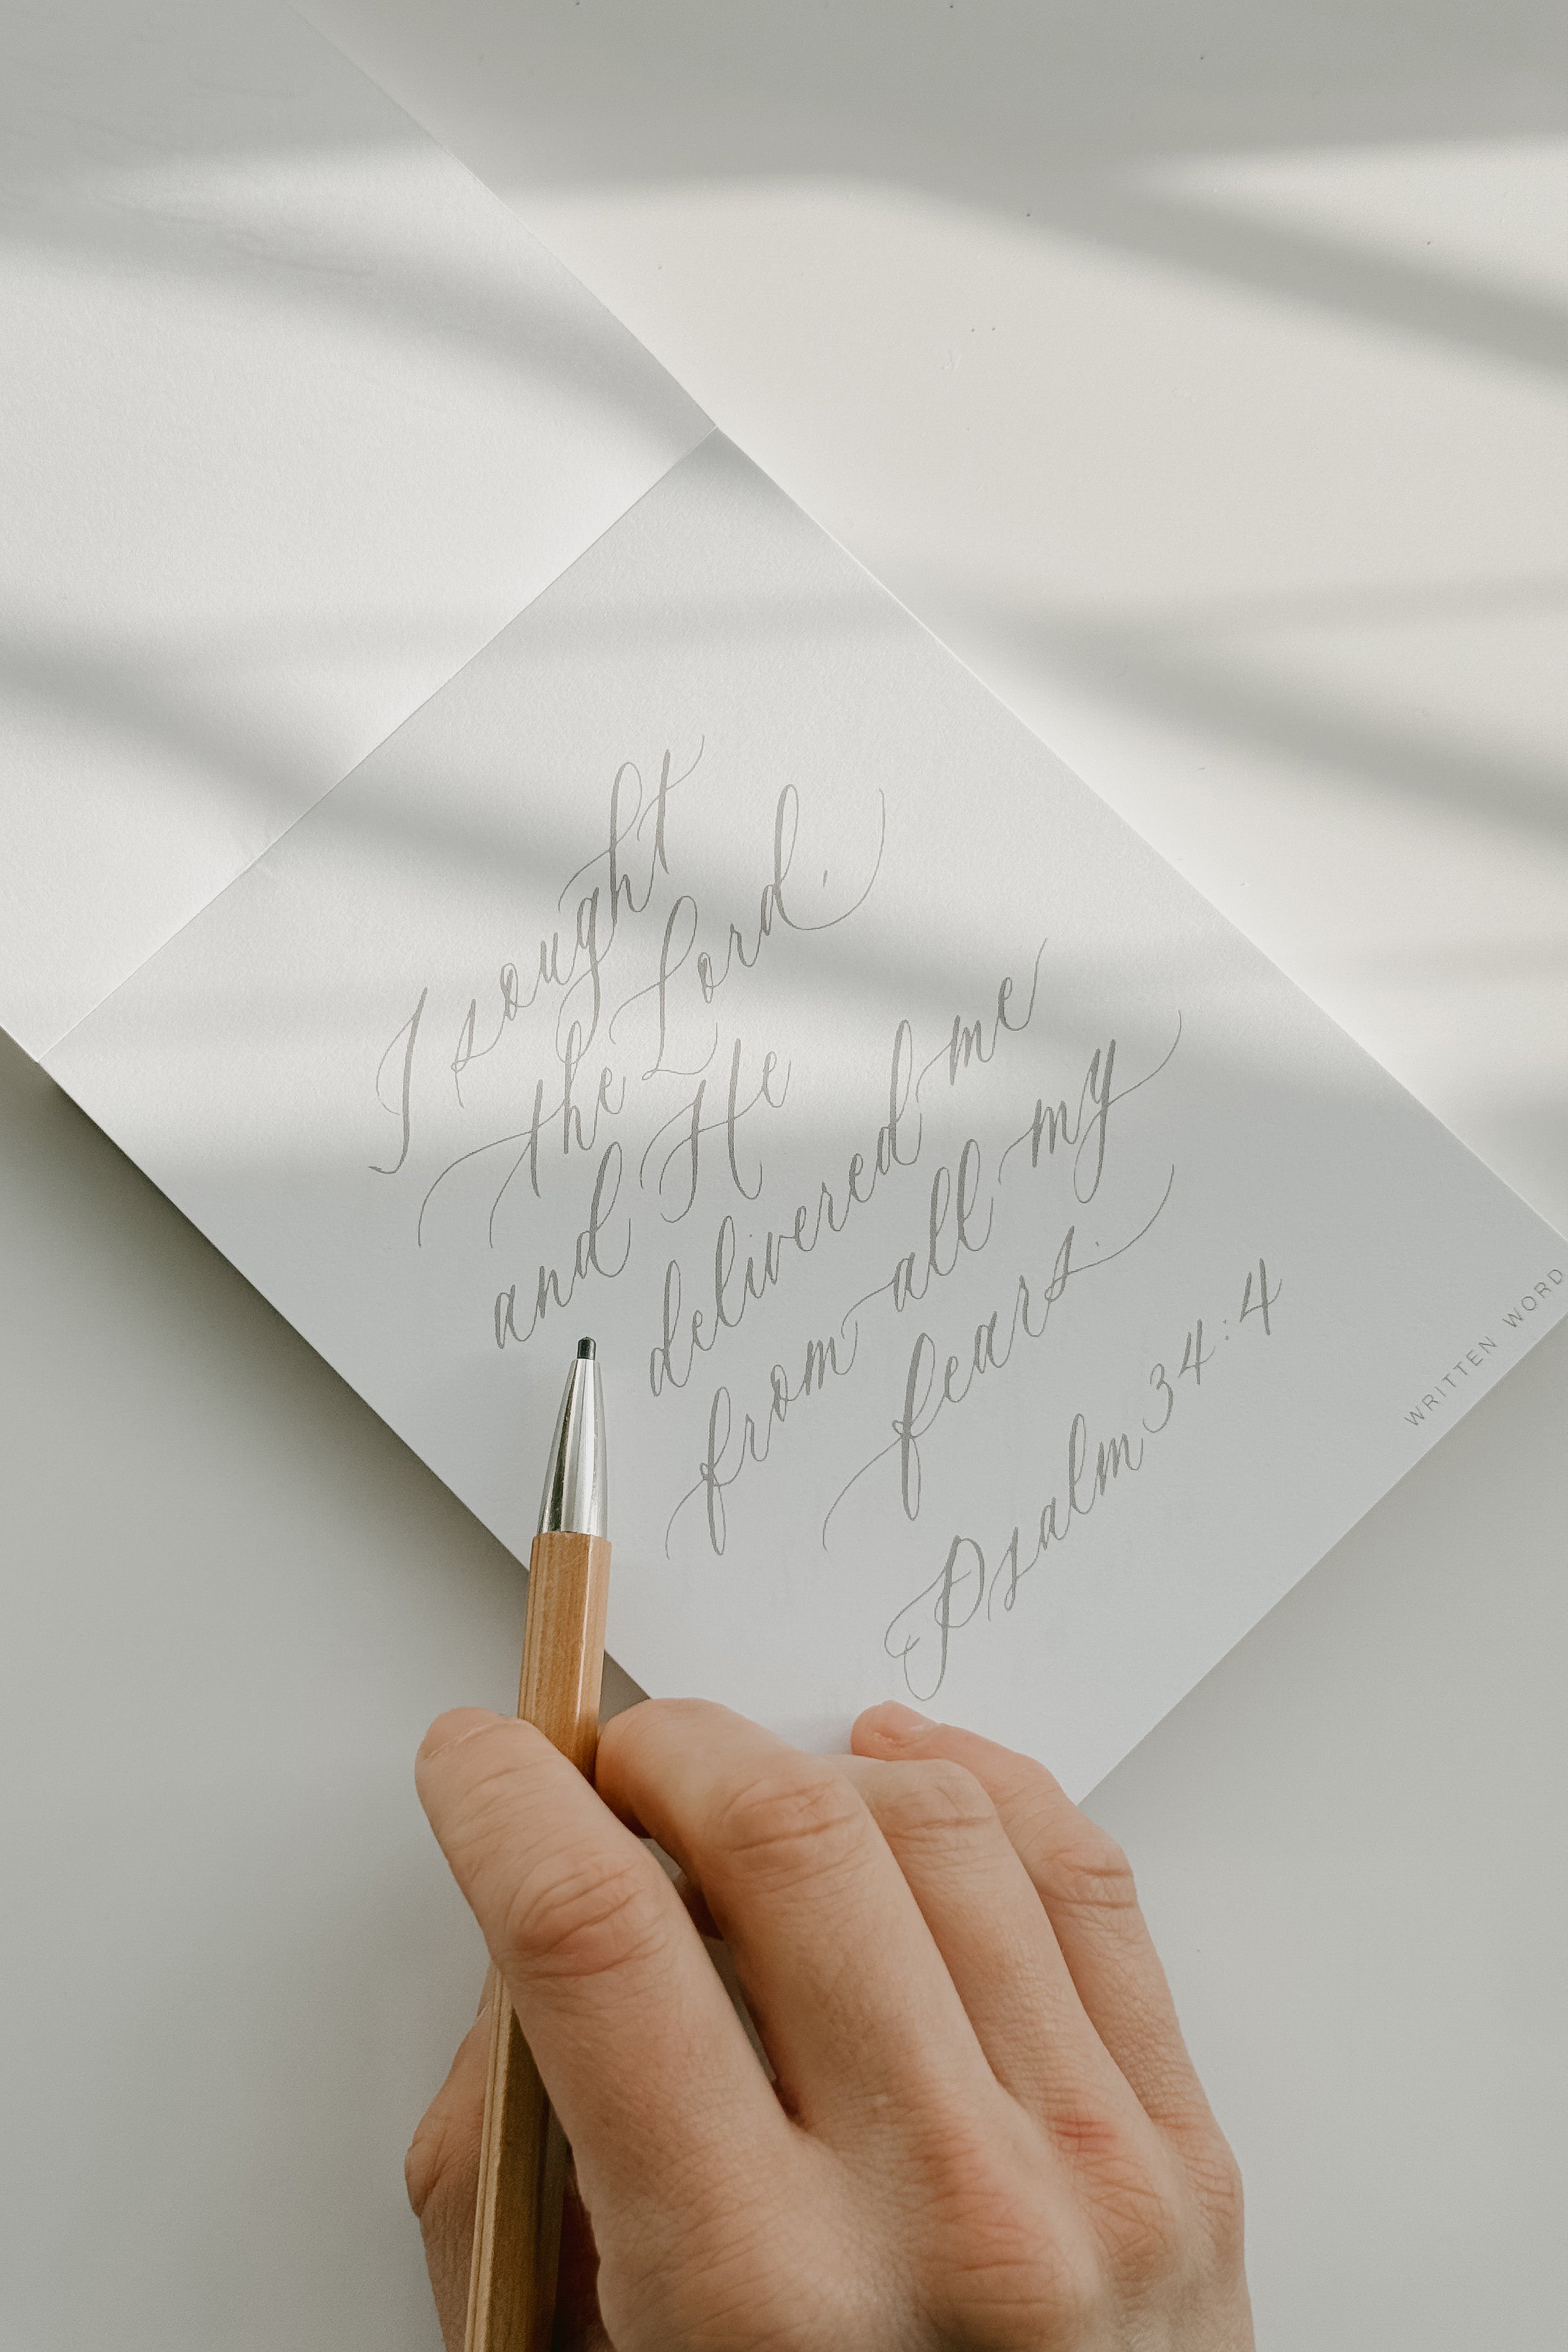 I sought
the Lord.
and He
delivered me
from all my
fears.
Psalm 34:4
WRITTEN WORD